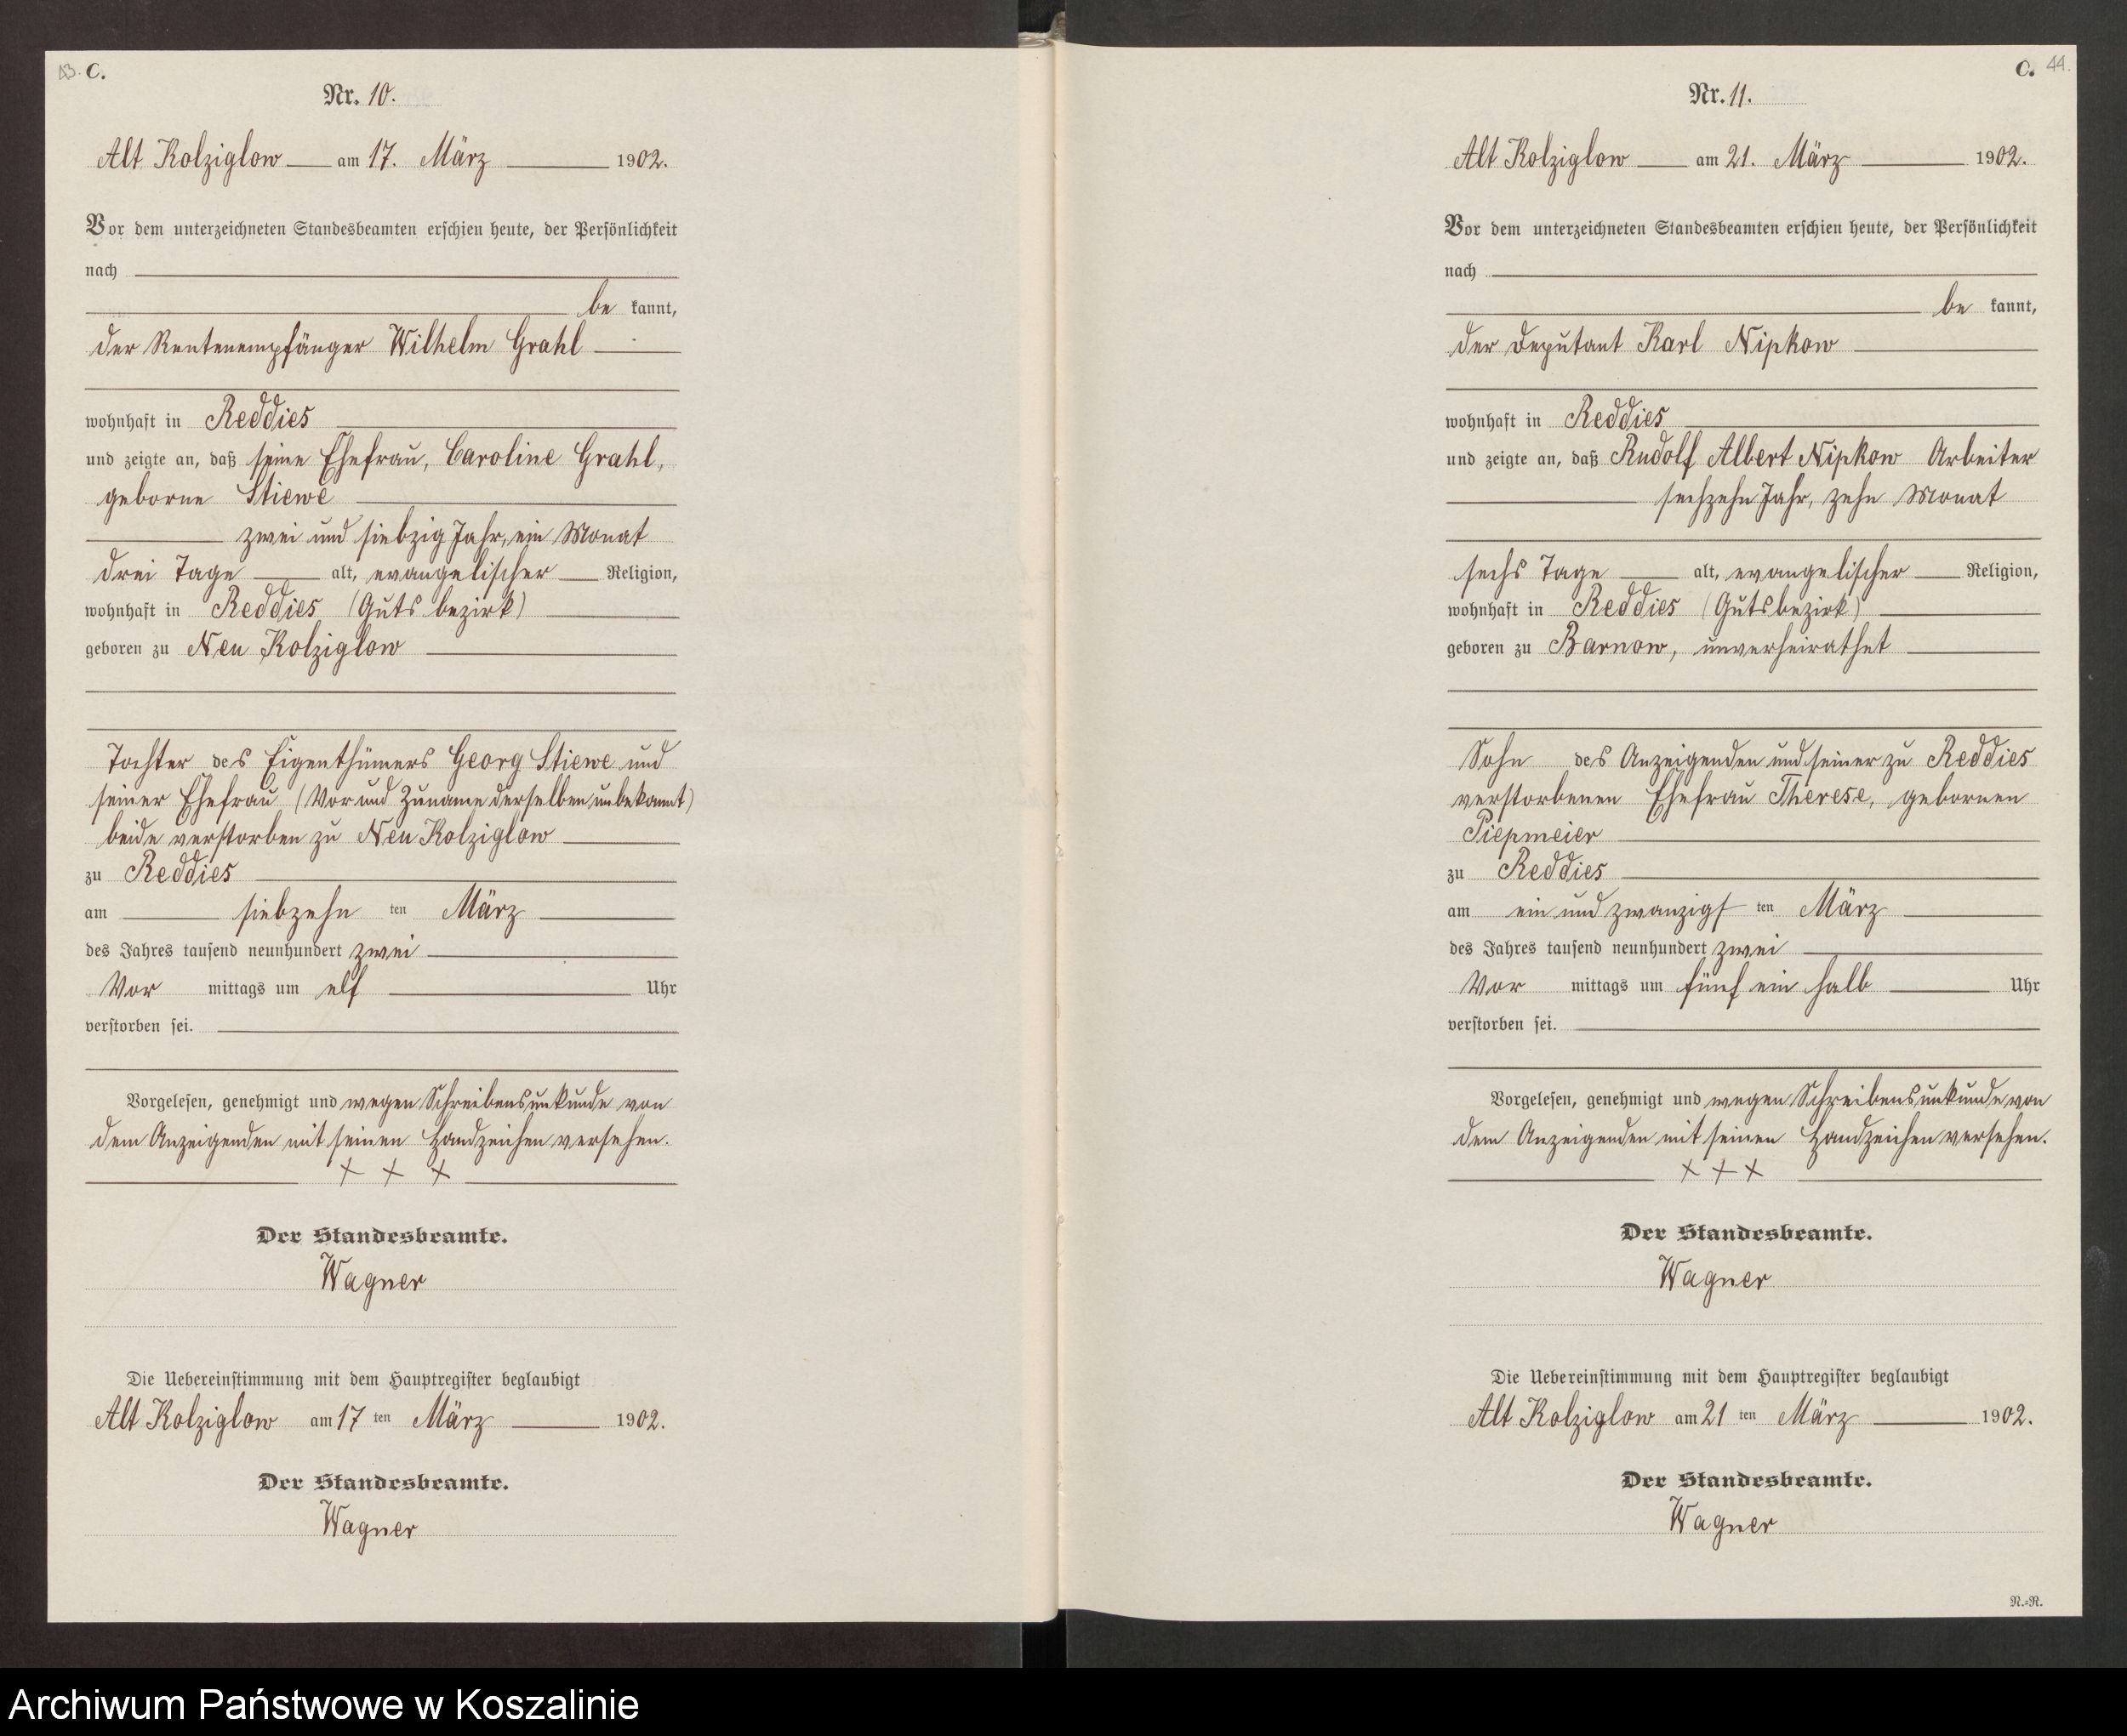 C.
Nr. 10.
Alt Kolziglow am 17. März 1902.
Vor dem unterzeichneten Standesbeamten erschien heute, der Persönlichkeit
nach
be kannt,
der Rentenempfänger Wilhelm Grahl
wohnhaft in Reddies
und zeigte an, daß seine Ehefrau, Caroline Grahl,
geborne Stiewe
zwei und siebzig Jahr, ein Monat
drei Tage alt, evangelischer Religion,
wohnhaft in Reddies (Gutsbezirk)
geboren zu Neu Kolziglow
Tochter des Eigenthümers Georg Stiewe und
seiner Ehefrau (Vor und Zuname derselben unbekannt)
beide verstorben zu Neu Kolziglow
zu Reddies
am siebzehn ten März
des Jahres tausend neunhundert zwei
Vor mittags um elf Uhr
verstorben sei.
Vorgelesen, genehmigt und wegen Schreibensunkunde von
dem Anzeigenden mit seinen Handzeichen versehen.
+ + +
Der Standesbeamte.
Wagner
Die Uebereinstimmung mit dem Hauptregister beglaubigt
Alt Kolziglow am 17 ten März 1902.
Der Standesbeamte.
Wagner
C. 44.
Nr. 11.
Alt Kolziglow am 21. März 1902.
Vor dem unterzeichneten Standesbeamten erschien heute, der Persönlichkeit
nach
be kannt,
der Deputant Karl Nipkow
wohnhaft in Reddies
und zeigte an, daß Rudolf Albert Nipkow Arbeiter
sechzehn Jahr, zehn Monat
sechs Tage alt, evangelischer Religion,
wohnhaft in Reddies (Gutsbezirk)
geboren zu Barnow, unverheirathet
Sohn des Anzeigenden und seiner zu Reddies
verstorbenen Ehefrau Therese, gebornen
Piepmeier
zu Reddies
am ein und zwanzigs ten März
des Jahres tausend neunhundert zwei
Vor mittags um fünf ein halb Uhr
verstorben sei.
Vorgelesen, genehmigt und wegen Schreibensunkunde von
dem Anzeigenden mit seinen Handzeichen versehen.
+ + +
Der Standesbeamte.
Wagner
Die Uebereinstimmung mit dem Hauptregister beglaubigt
Alt Kolziglow am 21 ten März 1902.
Der Standesbeamte.
Wagner
N.=R.
Archiwum Państwowe w Koszalinie